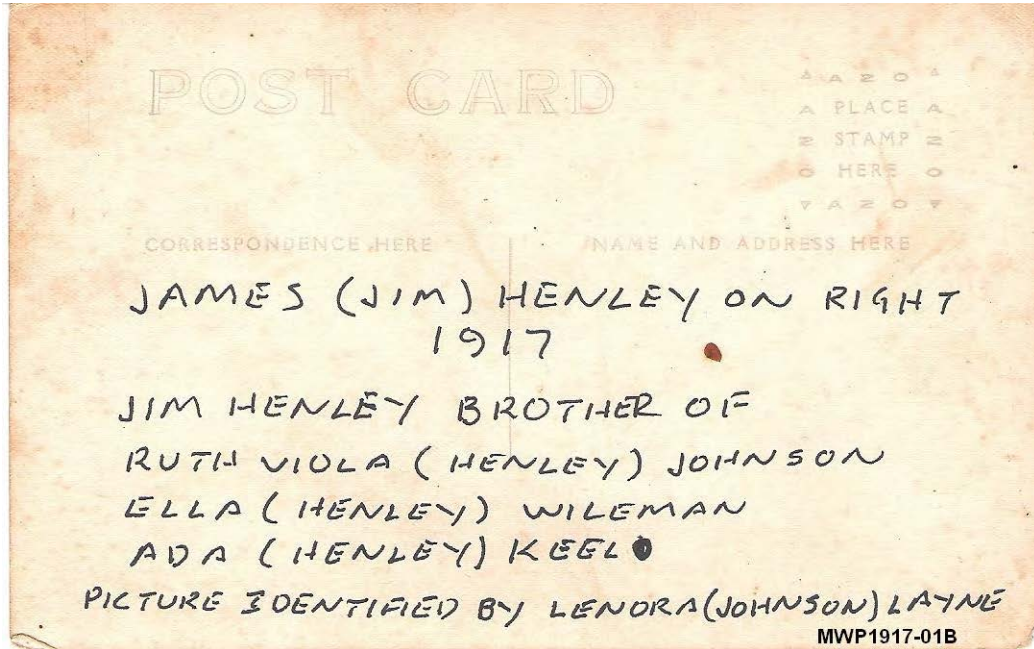 POST CARD
▲ A Z O ▲
A PLACE A
Z STAMP Z
O HERE O
▼ A Z O ▼
CORRESPONDENCE HERE
NAME AND ADDRESS HERE
JAMES (JIM) HENLEY ON RIGHT
1917
JIM HENLEY BROTHER OF
RUTH VIOLA (HENLEY) JOHNSON
ELLA (HENLEY) WILEMAN
ADA (HENLEY) KEEL
PICTURE IDENTIFIED BY LENORA (JOHNSON) LAYNE
MWP1917-01B